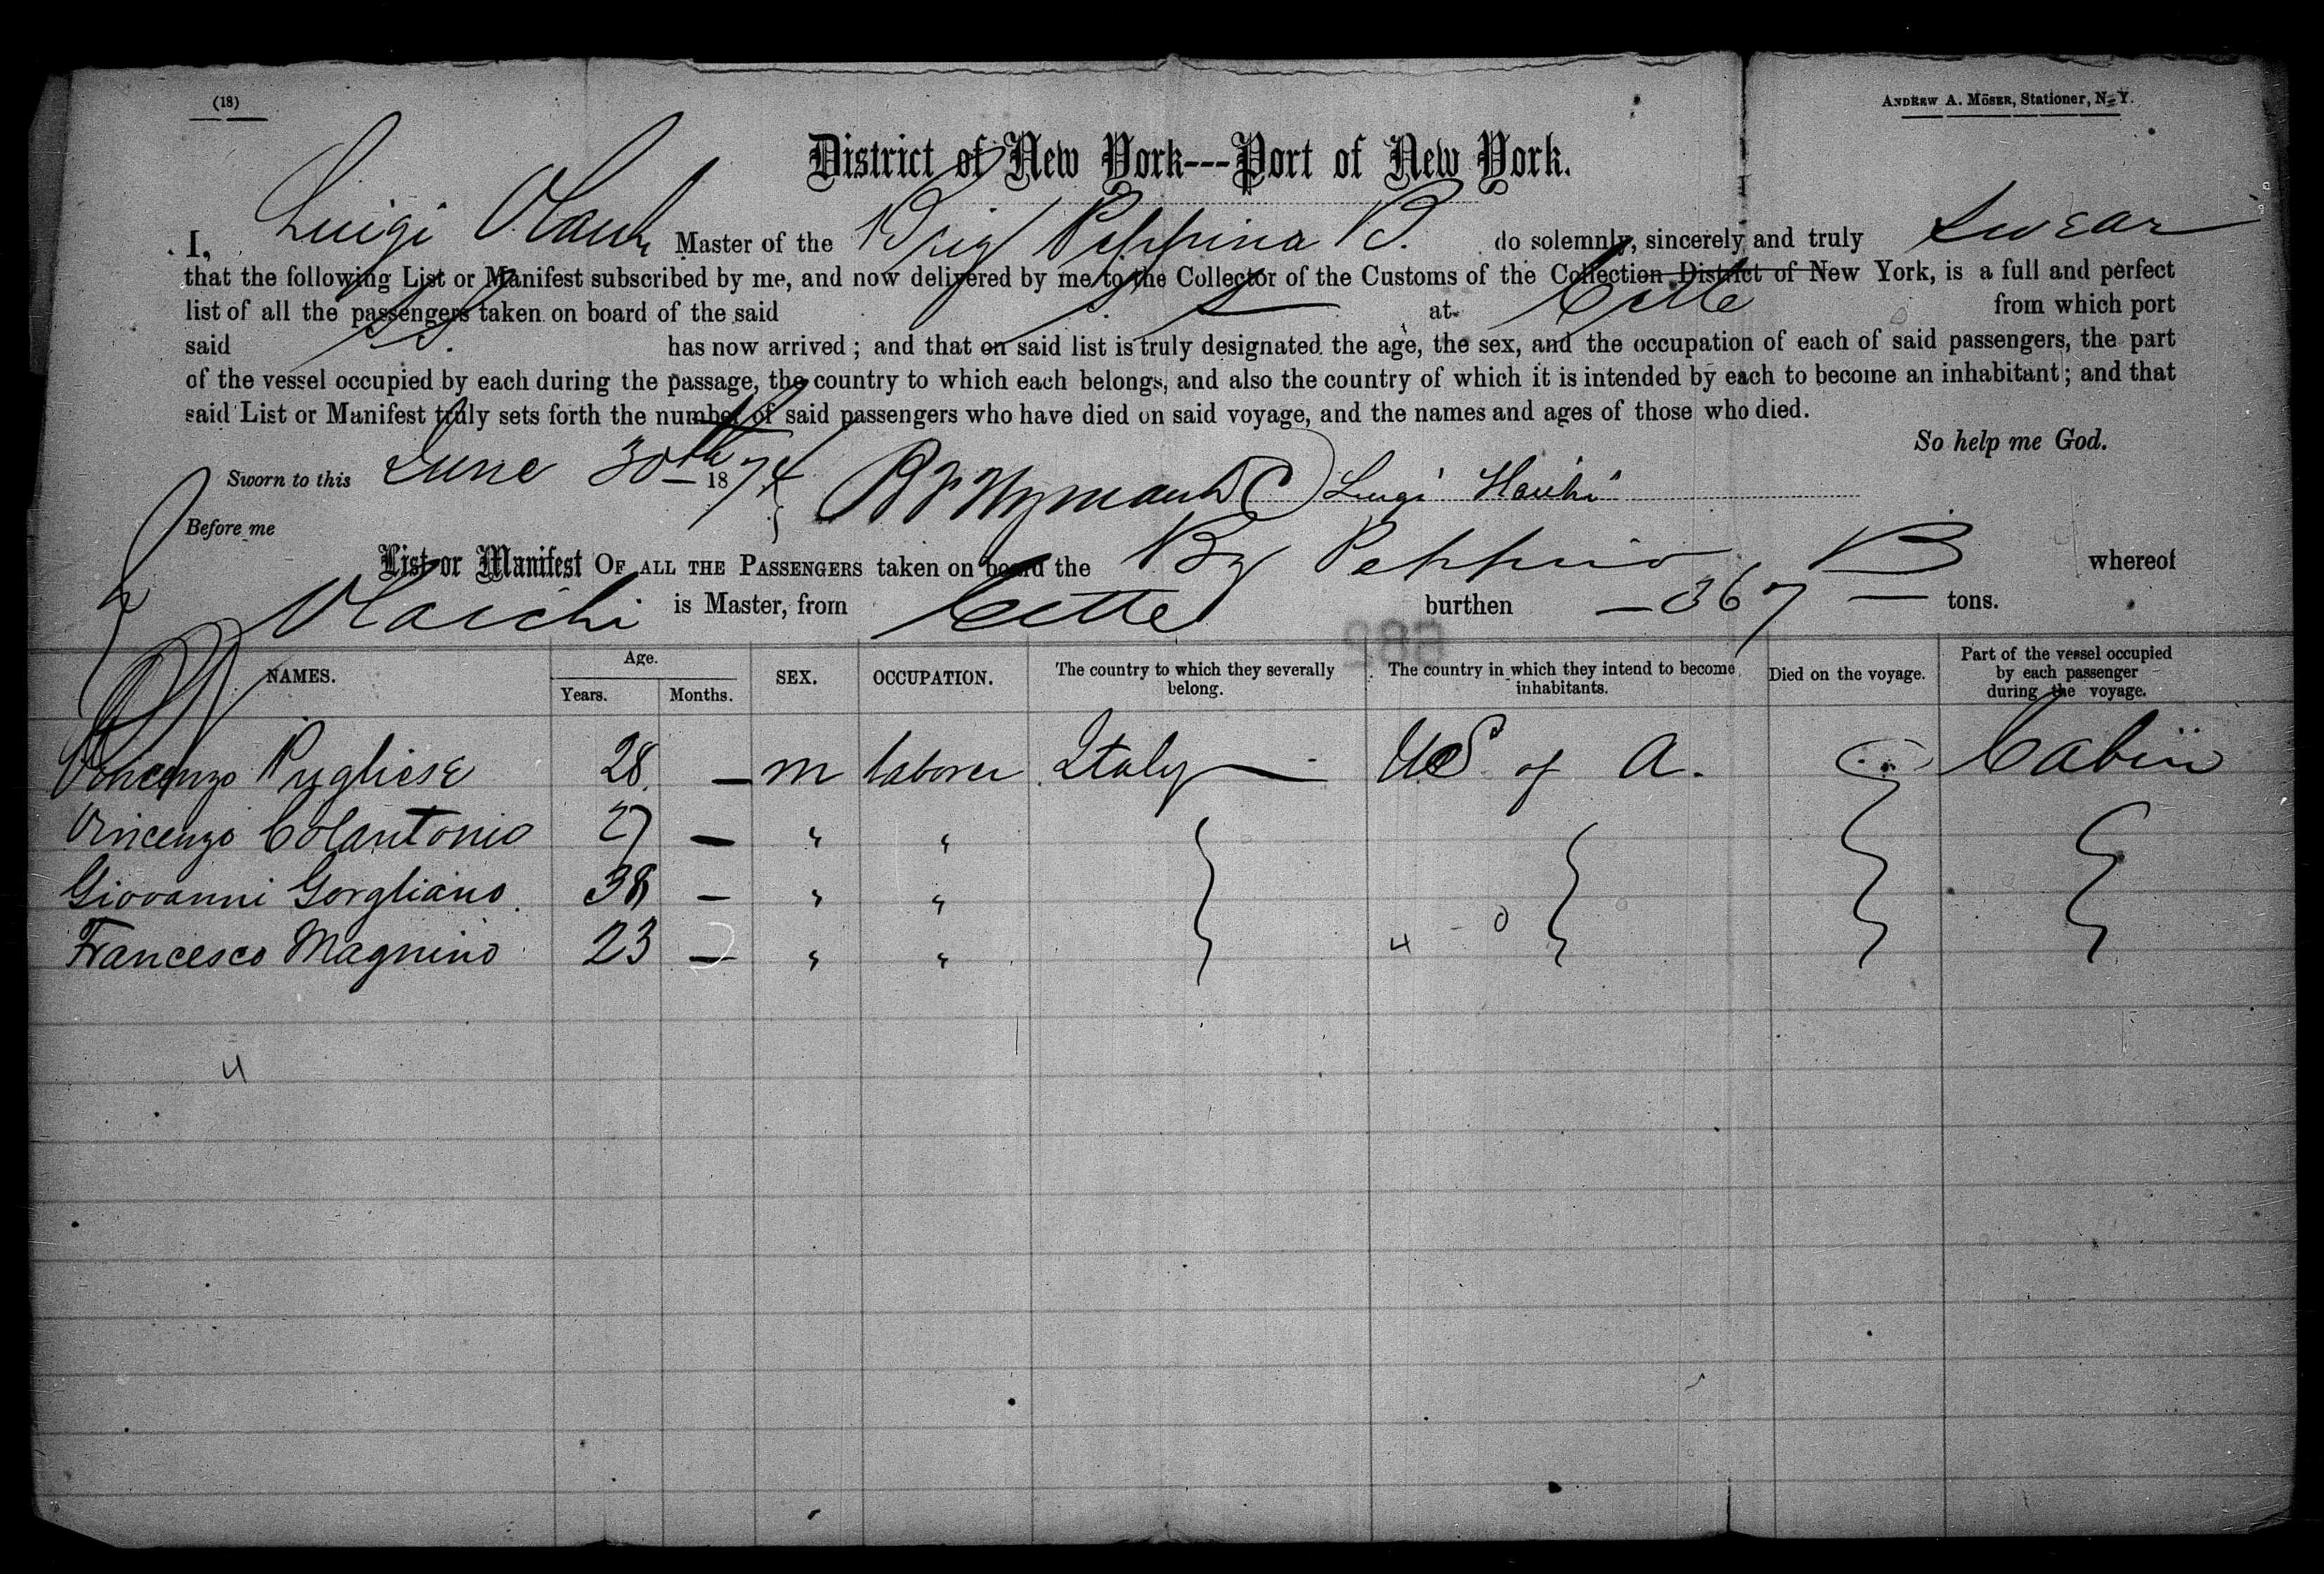 (18)
ANDREW A. MÖSER, Stationer, N. Y.
District of New York---Port of New York.
I, Luigi Master of the Brig Peppina B. do solemnly, sincerely and truly swear
that the following List or Manifest subscribed by me, and now delivered by me to the Collector of the Customs of the Collection District of New York, is a full and perfect
list of all the passengers taken on board of the said at Cette from which port
said has now arrived; and that on said list is truly designated the age, the sex, and the occupation of each of said passengers, the part
of the vessel occupied by each during the passage, the country to which each belongs, and also the country of which it is intended by each to become an inhabitant; and that
said List or Manifest truly sets forth the number of said passengers who have died on said voyage, and the names and ages of those who died.
So help me God.
Sworn to this June 30th 1874 Luigi
Before me
List or Manifest OF ALL THE PASSENGERS taken on board the Bg Peppina B whereof
is Master, from Cette burthen 367 tons.
NAMES. Age. Years. Months. SEX. OCCUPATION. The country to which they severally belong. The country in which they intend to become inhabitants. Died on the voyage. Part of the vessel occupied by each passenger during the voyage.
Vincenzo Pugliese 28 — m laborer Italy — U S of A. Cabin
Vincenzo Colantonio 27 — " "
Giovanni Gorgliano 38 — " "
Francesco Magnino 23 — " " 4 - 0
4